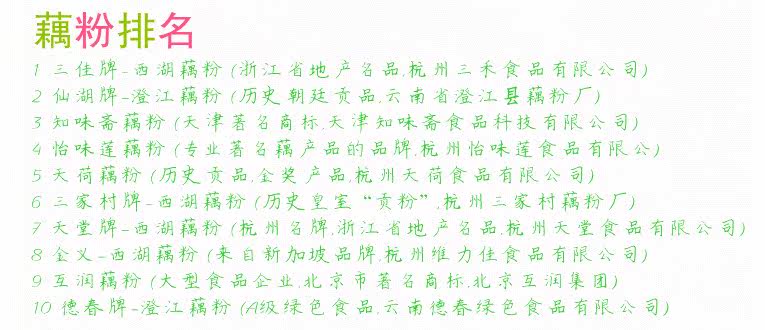 藕粉排名
1 三佳牌-西湖藕粉 (浙江省地产名品,杭州三禾食品有限公司)
2 仙湖牌-澄江藕粉 (历史朝廷贡品,云南省澄江县藕粉厂)
3 知味斋藕粉 (天津著名商标,天津知味斋食品科技有限公司)
4 怡味莲藕粉 (专业著名藕产品的品牌,杭州怡味莲食品有限公)
5 天荷藕粉 (历史贡品,金奖产品,杭州天荷食品有限公司)
6 三家村牌-西湖藕粉 (历史皇室“贡粉”,杭州三家村藕粉厂)
7 天堂牌-西湖藕粉 (杭州名牌,浙江省地产名品,杭州天堂食品有限公司)
8 金义-西湖藕粉 (来自新加坡品牌,杭州维力佳食品有限公司)
9 互润藕粉 (大型食品企业,北京市著名商标,北京互润集团)
10 德春牌-澄江藕粉 (A级绿色食品,云南德春绿色食品有限公司)